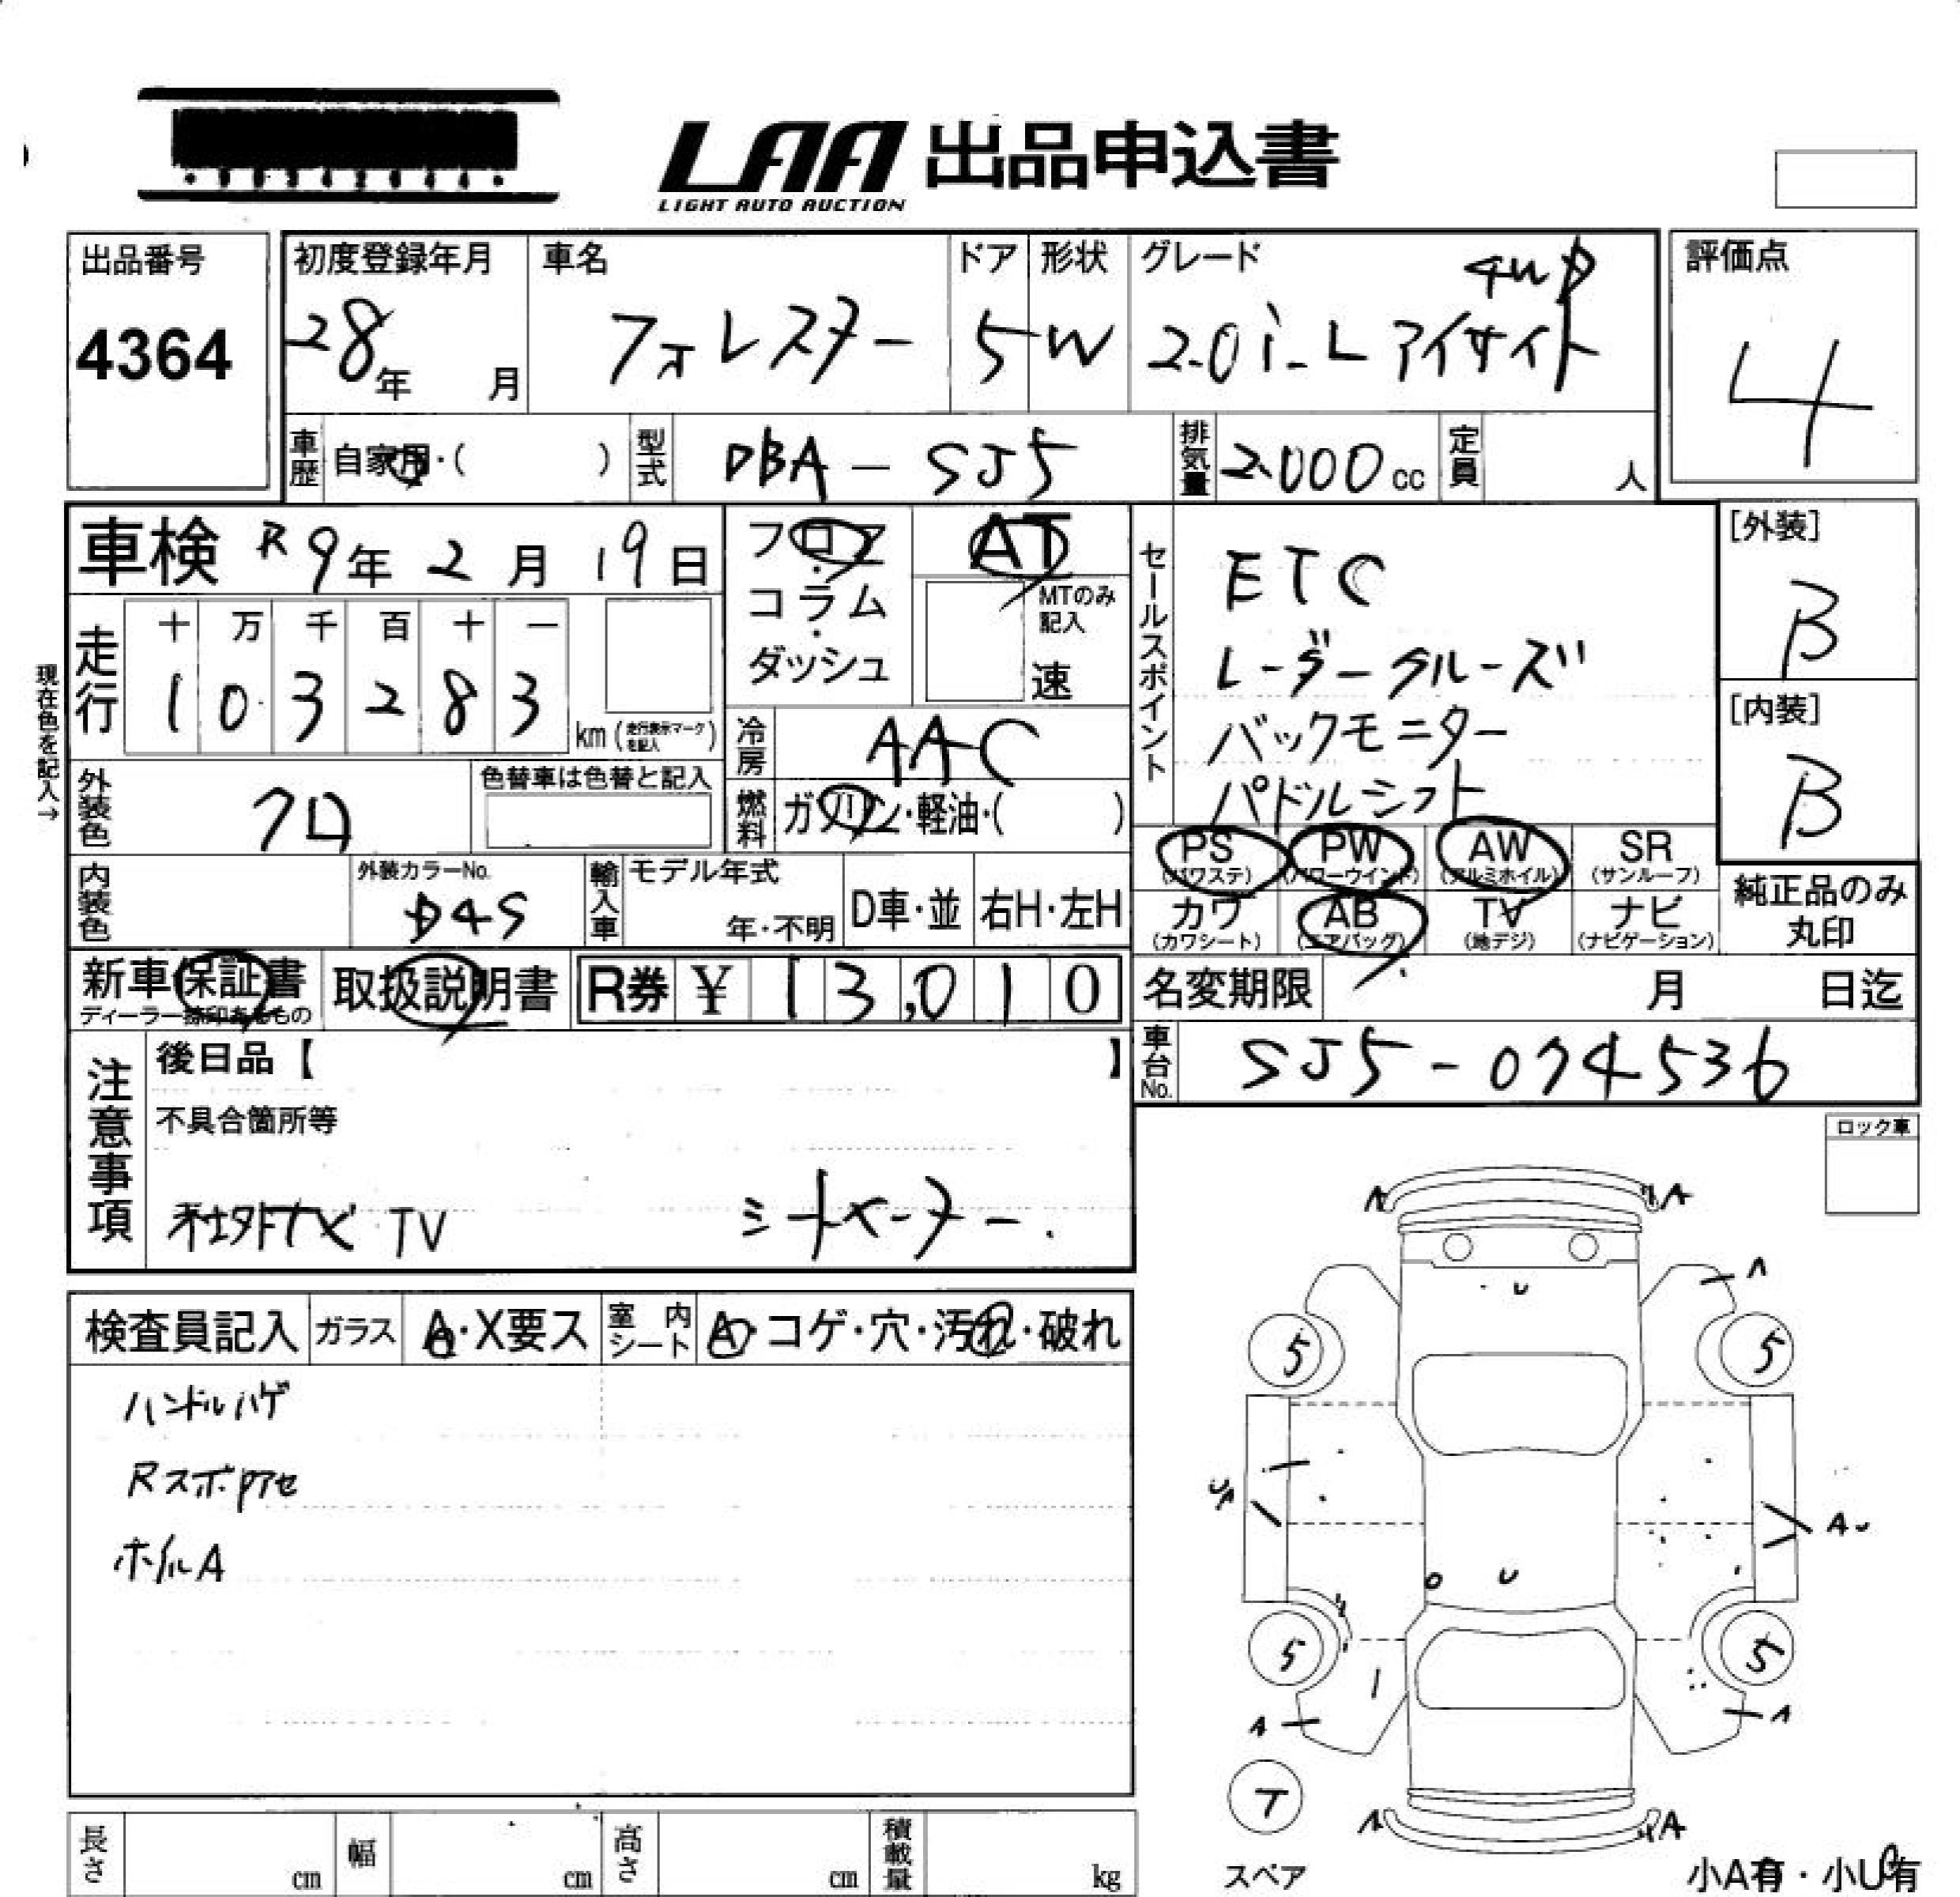 LAA 出品申込書
LIGHT AUTO AUCTION
出品番号
4364
初度登録年月
28年 月
車名
フォレスター
ドア
5
形状
W
グレード
4WD
2.0i-L アイサイト
評価点
4
車歴 自家用・( )
型式 DBA-SJ5
排気量 2.000cc
定員 人
車検 R9年2月19日
フロア・コラム・ダッシュ
AT
MTのみ記入
速
セールスポイント
ETC
レーダークルーズ
バックモニター
パドルシフト
[外装]
B
[内装]
B
現在色を記入→
走行
十 万 千 百 十 一
1 0 3 2 8 3
km (走行表示マークを記入)
冷房 AAC
外装色 クロ
色替車は色替と記入
燃料 ガソリン・軽油・( )
PS (パワステ)
PW (パワーウインド)
AW (アルミホイル)
SR (サンルーフ)
カワ (カワシート)
AB (エアバッグ)
TV (地デジ)
ナビ (ナビゲーション)
純正品のみ丸印
内装色
外装カラーNo.
D4S
輸入車
モデル年式
年・不明
D車・並
右H・左H
新車保証書
ディーラー捺印あるもの
取扱説明書
R券 ¥ 13,010
名変期限 月 日迄
車台No. SJ5-074536
注意事項
後日品【 】
不具合箇所等
社外ナビ TV
シートヒーター.
ロック車
検査員記入
ガラス A・X要ス
室内シート A・コゲ・穴・汚れ・破れ
ハンドルハゲ
ホイルA
A A
U
A
5 5
UA
AU
U
5 5
A A
T
スペア
A A
小A有・小U有
長さ cm
幅 cm
高さ cm
積載量 kg